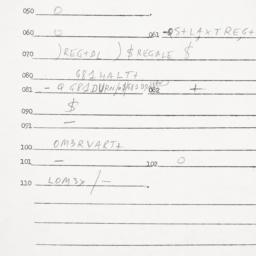 050 O
060 O 061 -QS+LAXTREG+
070 )REG+DL )$REGALE $
080 G81WALT+
081 - Q G81DURN 082 +
090 $
091 -
100 OM3RVART+
101 - 102 O
110 LOM3X/-